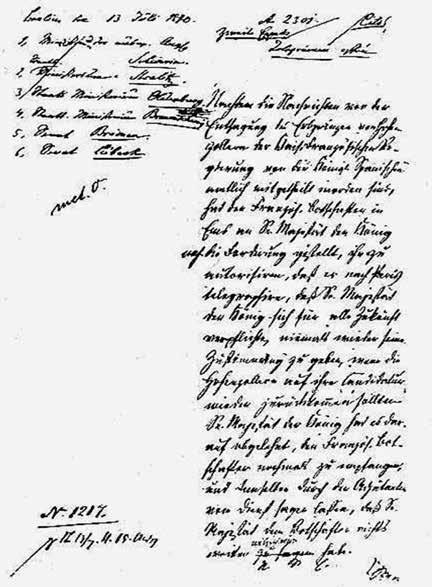 Berlin den 13 Juli 1870.
A 2301
Cito!
Schwerin
Strelitz
3, Staats Ministerium Oldenburg
4, Staats Ministerium
5, Senat Bremen
6, Senat Lübeck
Nachdem die Nachrichten von der
Entsagung des Erbprinzen von Hohen
zollern der Kais. Französischen Re
gierung von der Königl. Spanischen
amtlich mitgetheilt worden sind,
hat der Französ. Botschafter in
Ems an Se. Majestät den König
noch die Forderung gestellt, ihn zu
autorisiren, daß er nach Paris
telegraphire, daß Se. Majestät
der König sich für alle Zukunft
verpflichte, niemals wieder seine
Zustimmung zu geben, wenn die
Hohenzollern auf ihre Candidatur
wieder zurückkommen sollten.
Se. Majestät der König hat es dar
auf abgelehnt, den Französ. Bot
schafter nochmals zu empfangen,
und demselben durch den Adjutanten
vom Dienst sagen lassen, daß Se.
Majestät dem Botschafter nichts
weiter zu sagen habe.